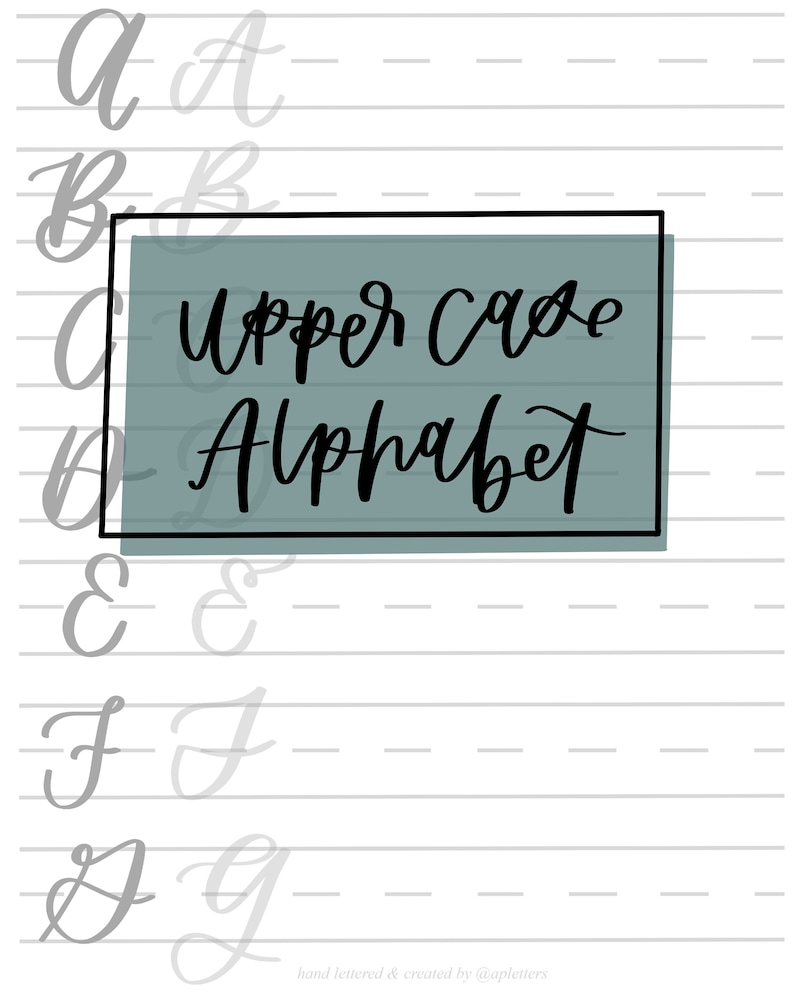 A A
B B
Upper case
C C
Alphabet
D D
E E
F F
G G
hand lettered & created by @apletters